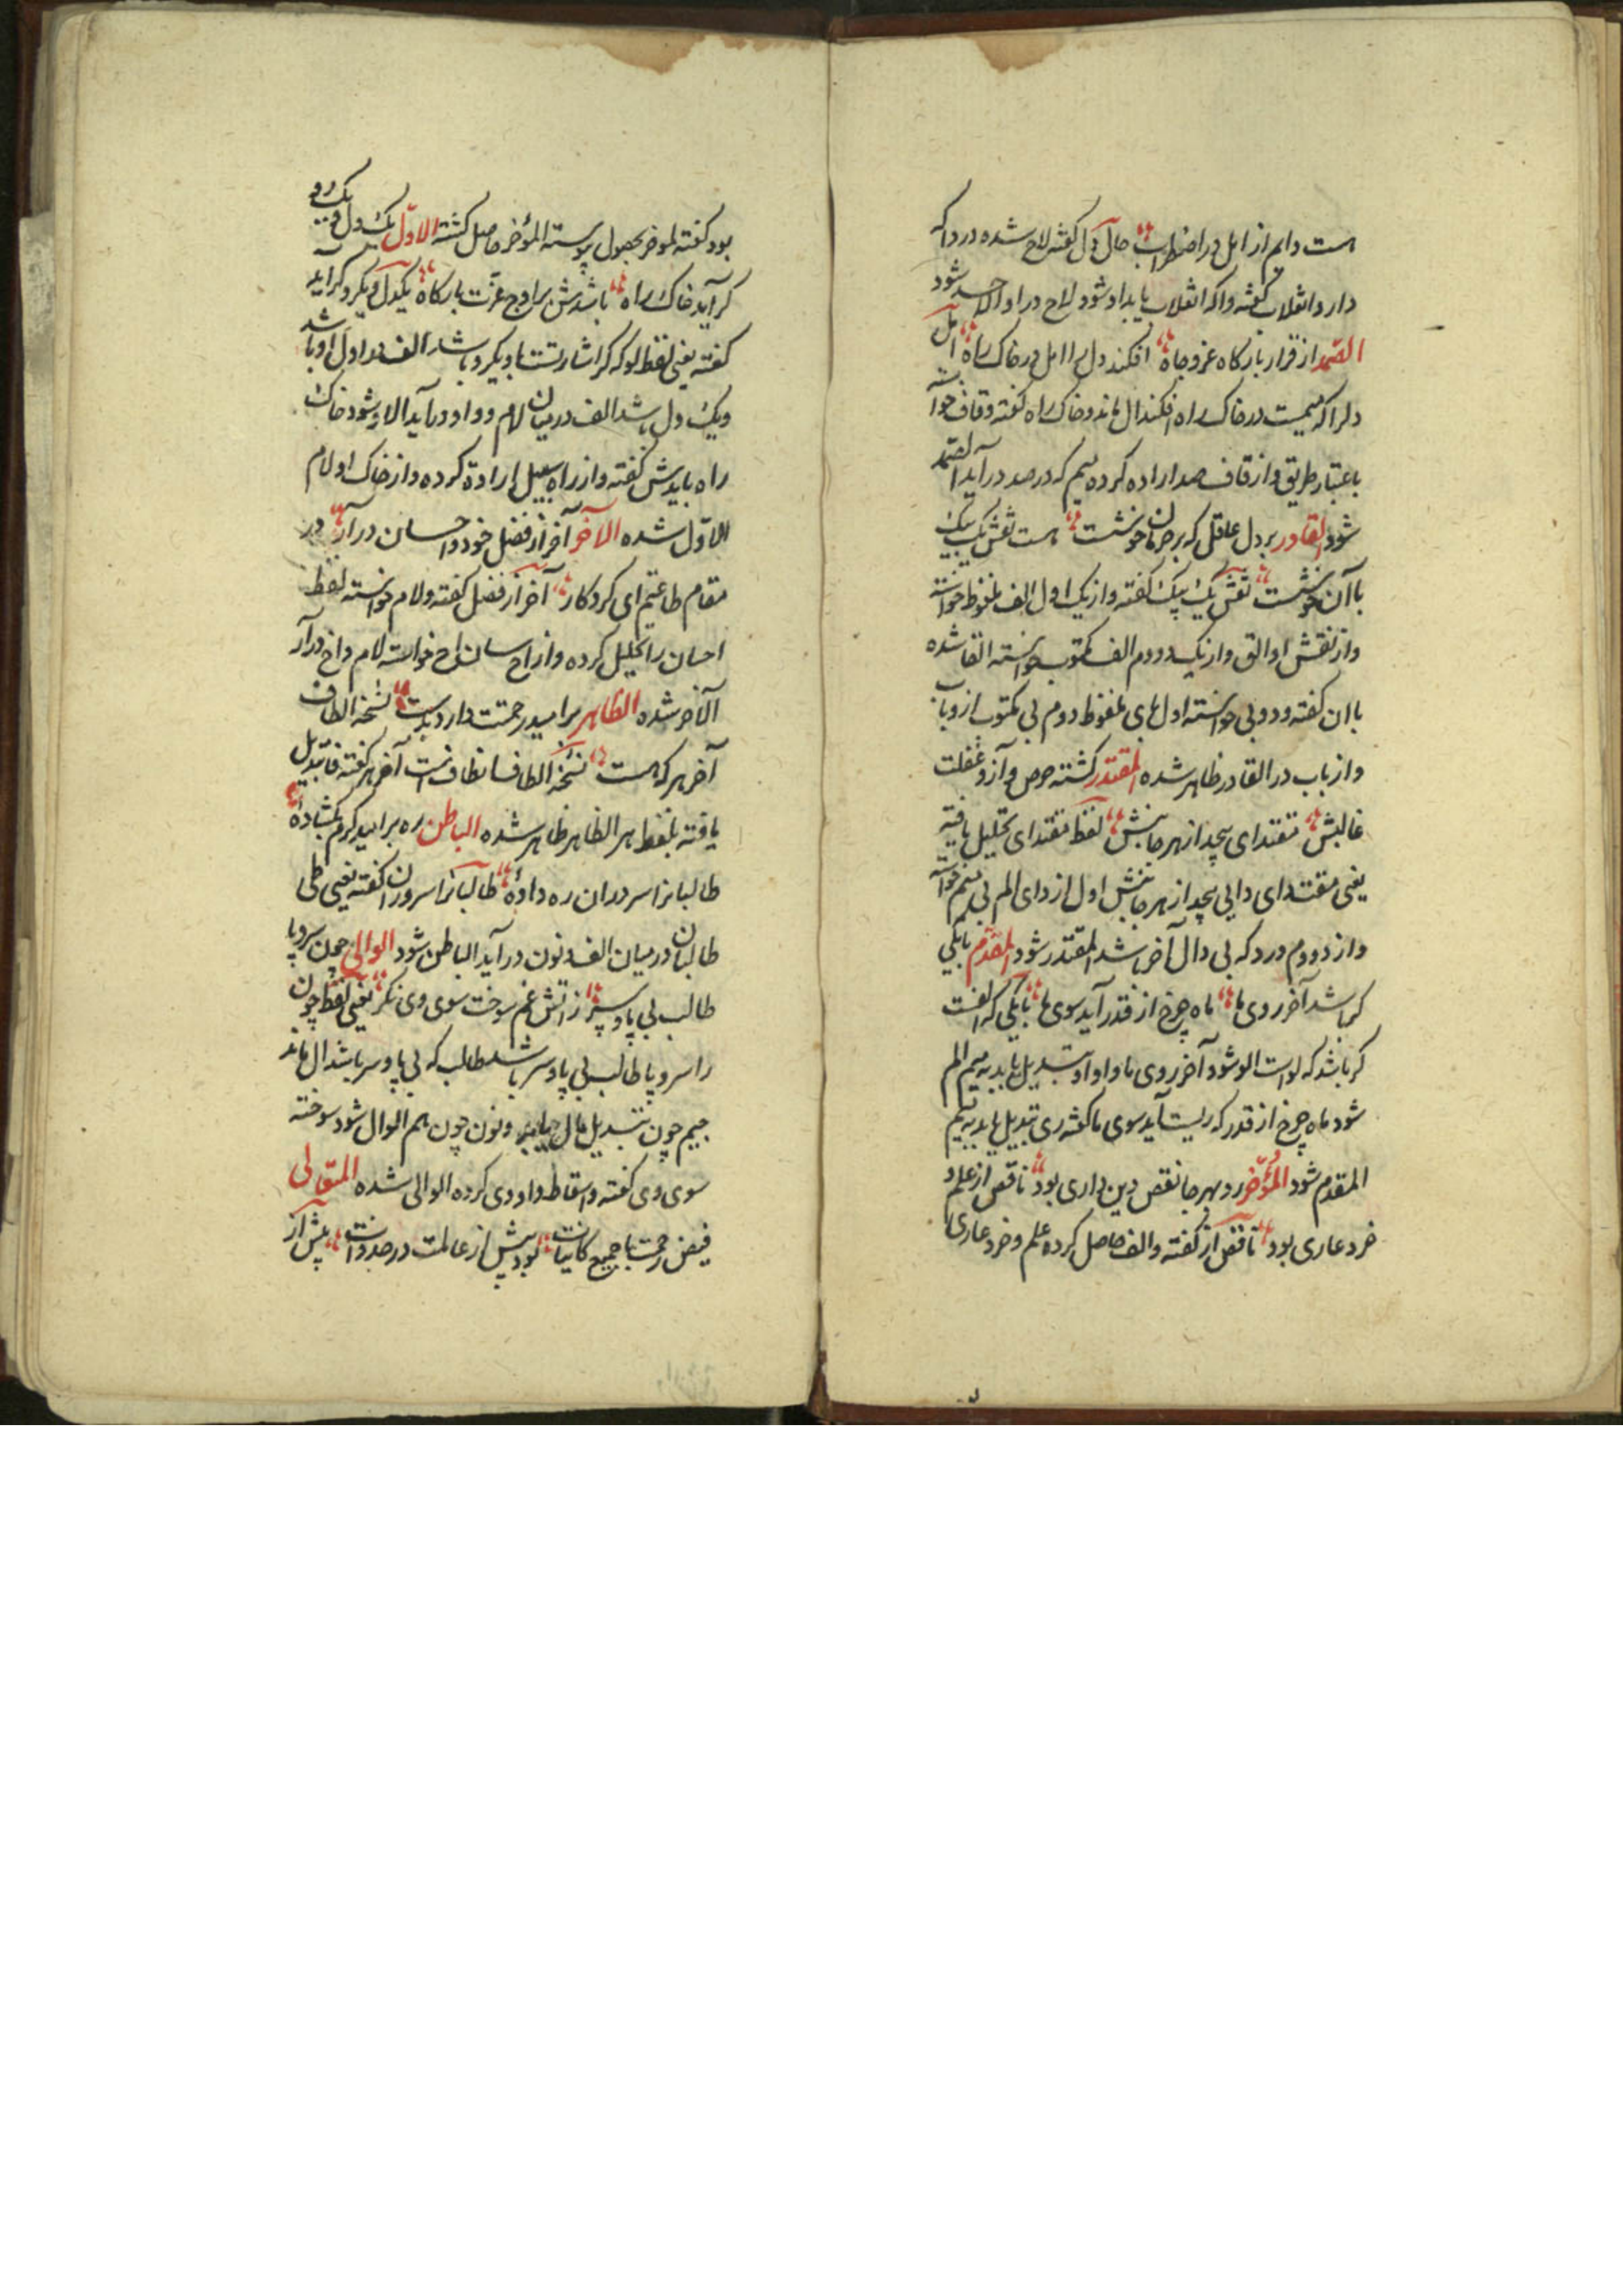 هست دایم از امل در اضطراب حال دل کفته لاح شده در دا که
دارد انقلاب کفته واکه انقلاب یابد اد شود لاح در اد الاحد شود
الصمد از قرار بارکاه عز و جاه افکند دل را امل در خاک راه امل
دلرا که میمست در خاک راه افکند ال ماند و خاک راه کفته و قاف خواسته
باعتبار طریق و از قاف صد اراده کرده میم که در صد در آید الصمد
شود القادر بر دل عاقل که بر حرمان خوشست هست نقش یک بیک
با آن خوشست نقش یک بیک کفته و از یک اول الف ملفوظ خواسته
و از نقش او الق و از یک دوم الف مکتوب خواسته القا شده
با ان کفته و دو بی خواسته اول بای ملفوظ دوم بی مکتوب از و باب
و از باب در القادر ظاهر شده المقتدر کشته حرص و آز و غفلت
غالبش مقتدای پیچد از هر جانبش لفظ مقتدای تحلیل یافته
یعنی مقت دای دایی پیچد از هر جانبش اول از دای الم بی میم خواسته
و از دوم درد که بی دال آخر باشد المقتدر شود المقدم بایکی
کر باشد آخر روی ما ماه چرخ از قدر آید سوی ما بایکی که الفست
کر باشد که لو است الو شود آخر روی ما واو او تبدیل یابد بمیم الم
شود ماه چرخ از قدر که ریست آید سوی ما کفته ری تبدیل یابد بمیم
المقدم شود المؤخر رو بهر جا نقص دین داری بود ناقص از علم و
خرد عاری بود ناقص از کفته و الف حاصل کرده علم و خرد عاری
بود کفته لمو خر بحصول پیوسته المؤخر حاصل کشته الاول یک دل و یک رو
کر آید خاک راه باشدش بر اوج عزت بارکاه یکدل و یکرو کر آید
کفته یعنی لفظ لو که کر اشارتست باو یکرو باشد الف در اول او باشد
ویک دل باشد الف در میان لام و واو در آید الاو شود خاک
راه بایدش کفته و از راه سبیل ارادة کرده و از خاک او لام
الاول شده الآخر آخر از فضل خود و احسان درآر در
مقام طاعتم ای کردکار آخر از فضل کفته و لام خواسته لفظ
احسان را تحلیل کرده و از اح سان اخ خواسته لام و اخ در آر
الآخر شده الظاهر بر امید رحمتت دارد بدست نسخه الطاف
آخر هر که هست نسخه الطاف انطاف است آخر هر کفته فا تبدیل
یافته بلفظ هر الظاهر ظاهر شده الباطن ره بر امید کرم بکشاده
طالبانرا سر در ان ره داده طالبانرا سر در ان کفته یعنی طی
طالبان در میان الف و نون در آید الباطن شود الوالی چون سر و پا
طالب بی پا و سر ز اتش غم سوخت سوی وی نکر یعنی لفظ چون
را سر و پا طالب بی پا و سر باشد طالب که بی پا و سر باشد ال ماند
جیم چون تبدیل بال یابد و نون چون هم الوال شود سوخته
سوی وی کفته و اسقاط واو وی کرده الوالی شده المتعالی
فیض رحمت با جمیع کاینات بود پیش از عالمت در صد وات پیش از